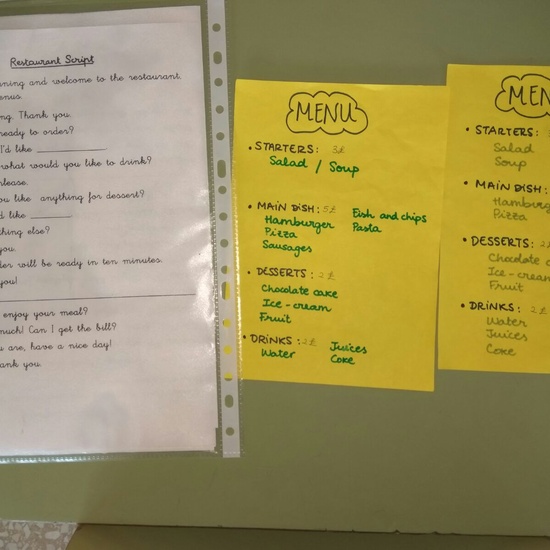 Restaurant Script
ning and welcome to the restaurant.
enus.
ng. Thank you.
ready to order?
I'd like
what would you like to drink?
please.
you like anything for dessert?
d like
thing else?
you.
der will be ready in ten minutes.
you!
enjoy your meal?
much! Can I get the bill?
u are, have a nice day!
ank you.
MENU
• STARTERS: 3£
Salad / Soup
• MAIN DISH: 5£
Hamburger Fish and chips
Pizza Pasta
Sausages
• DESSERTS: 2£
Chocolate cake
Ice-cream
Fruit
• DRINKS: 2£
Water Juices
Coke
MEN
• STARTERS:
Salad
Soup
• MAIN DISH:
Hamburg
Pizza
• DESSERTS: 2
Chocolate c
Ice-cream
Fruit
• DRINKS: 2£
Water
Juices
Coke